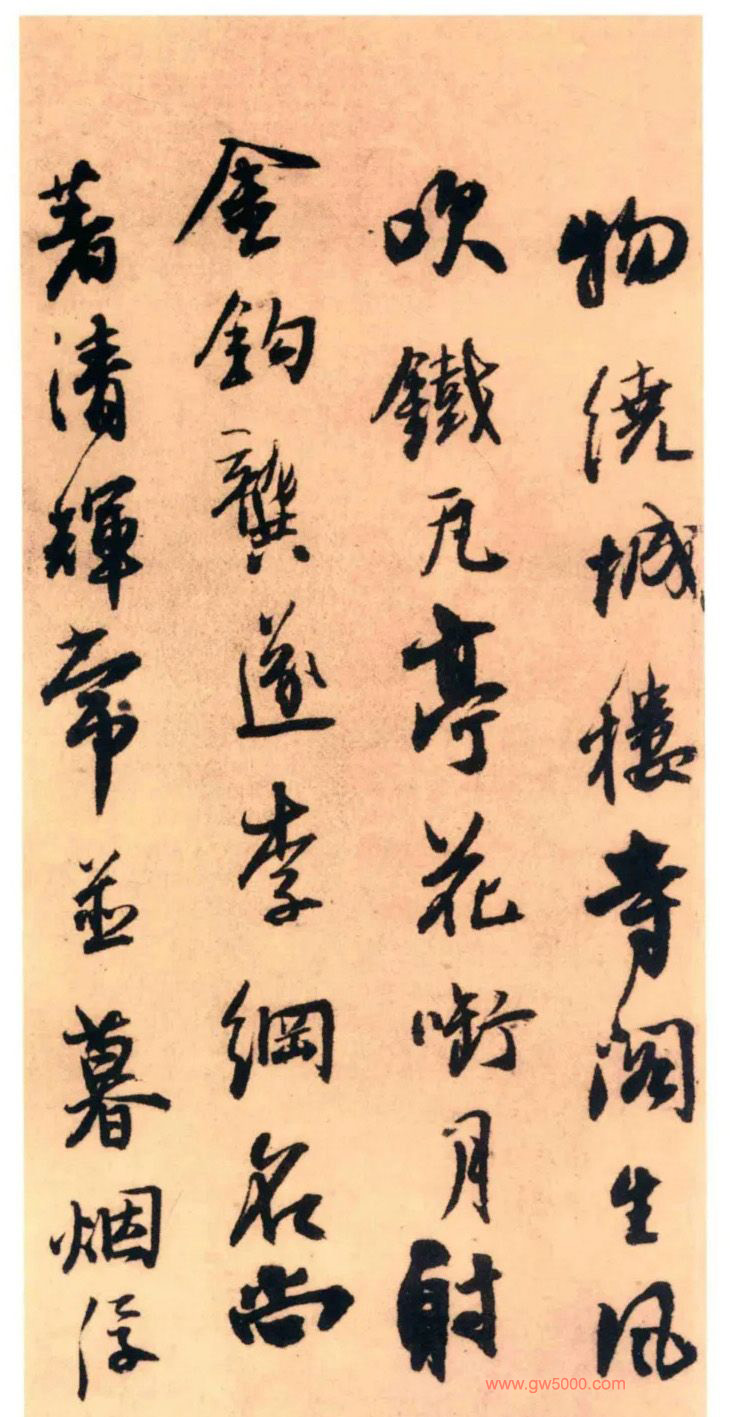 物繞城樓寺閣生風
吹鐵瓦亭花啣月射
金鈎龔遂李綱名尚
著清輝常並暮烟浮
www.gw5000.com